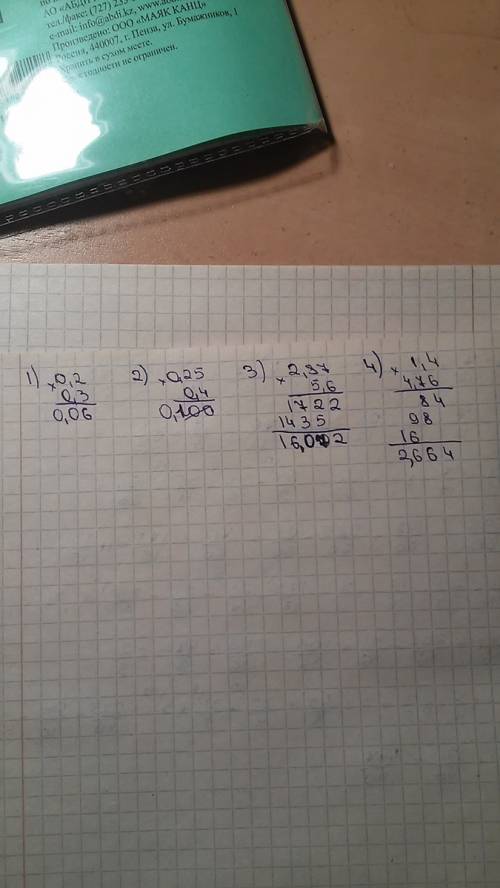 АО «АБДИ
тел/факс (727) 233-
e-mail: info@abdi.kz, www.abdi
Произведено: ООО «МАЯК КАНЦ»
Россия, 440007, г. Пенза, ул. Бумажников, 1
Хранить в сухом месте.
годности не ограничен.
1) 0,2
× 0,3
0,06
2) 0,25
× 0,4
0,100
3) 2,37
× 5,6
1722
1435
16,072
4) 1,4
× 4,76
84
98
16
2,664